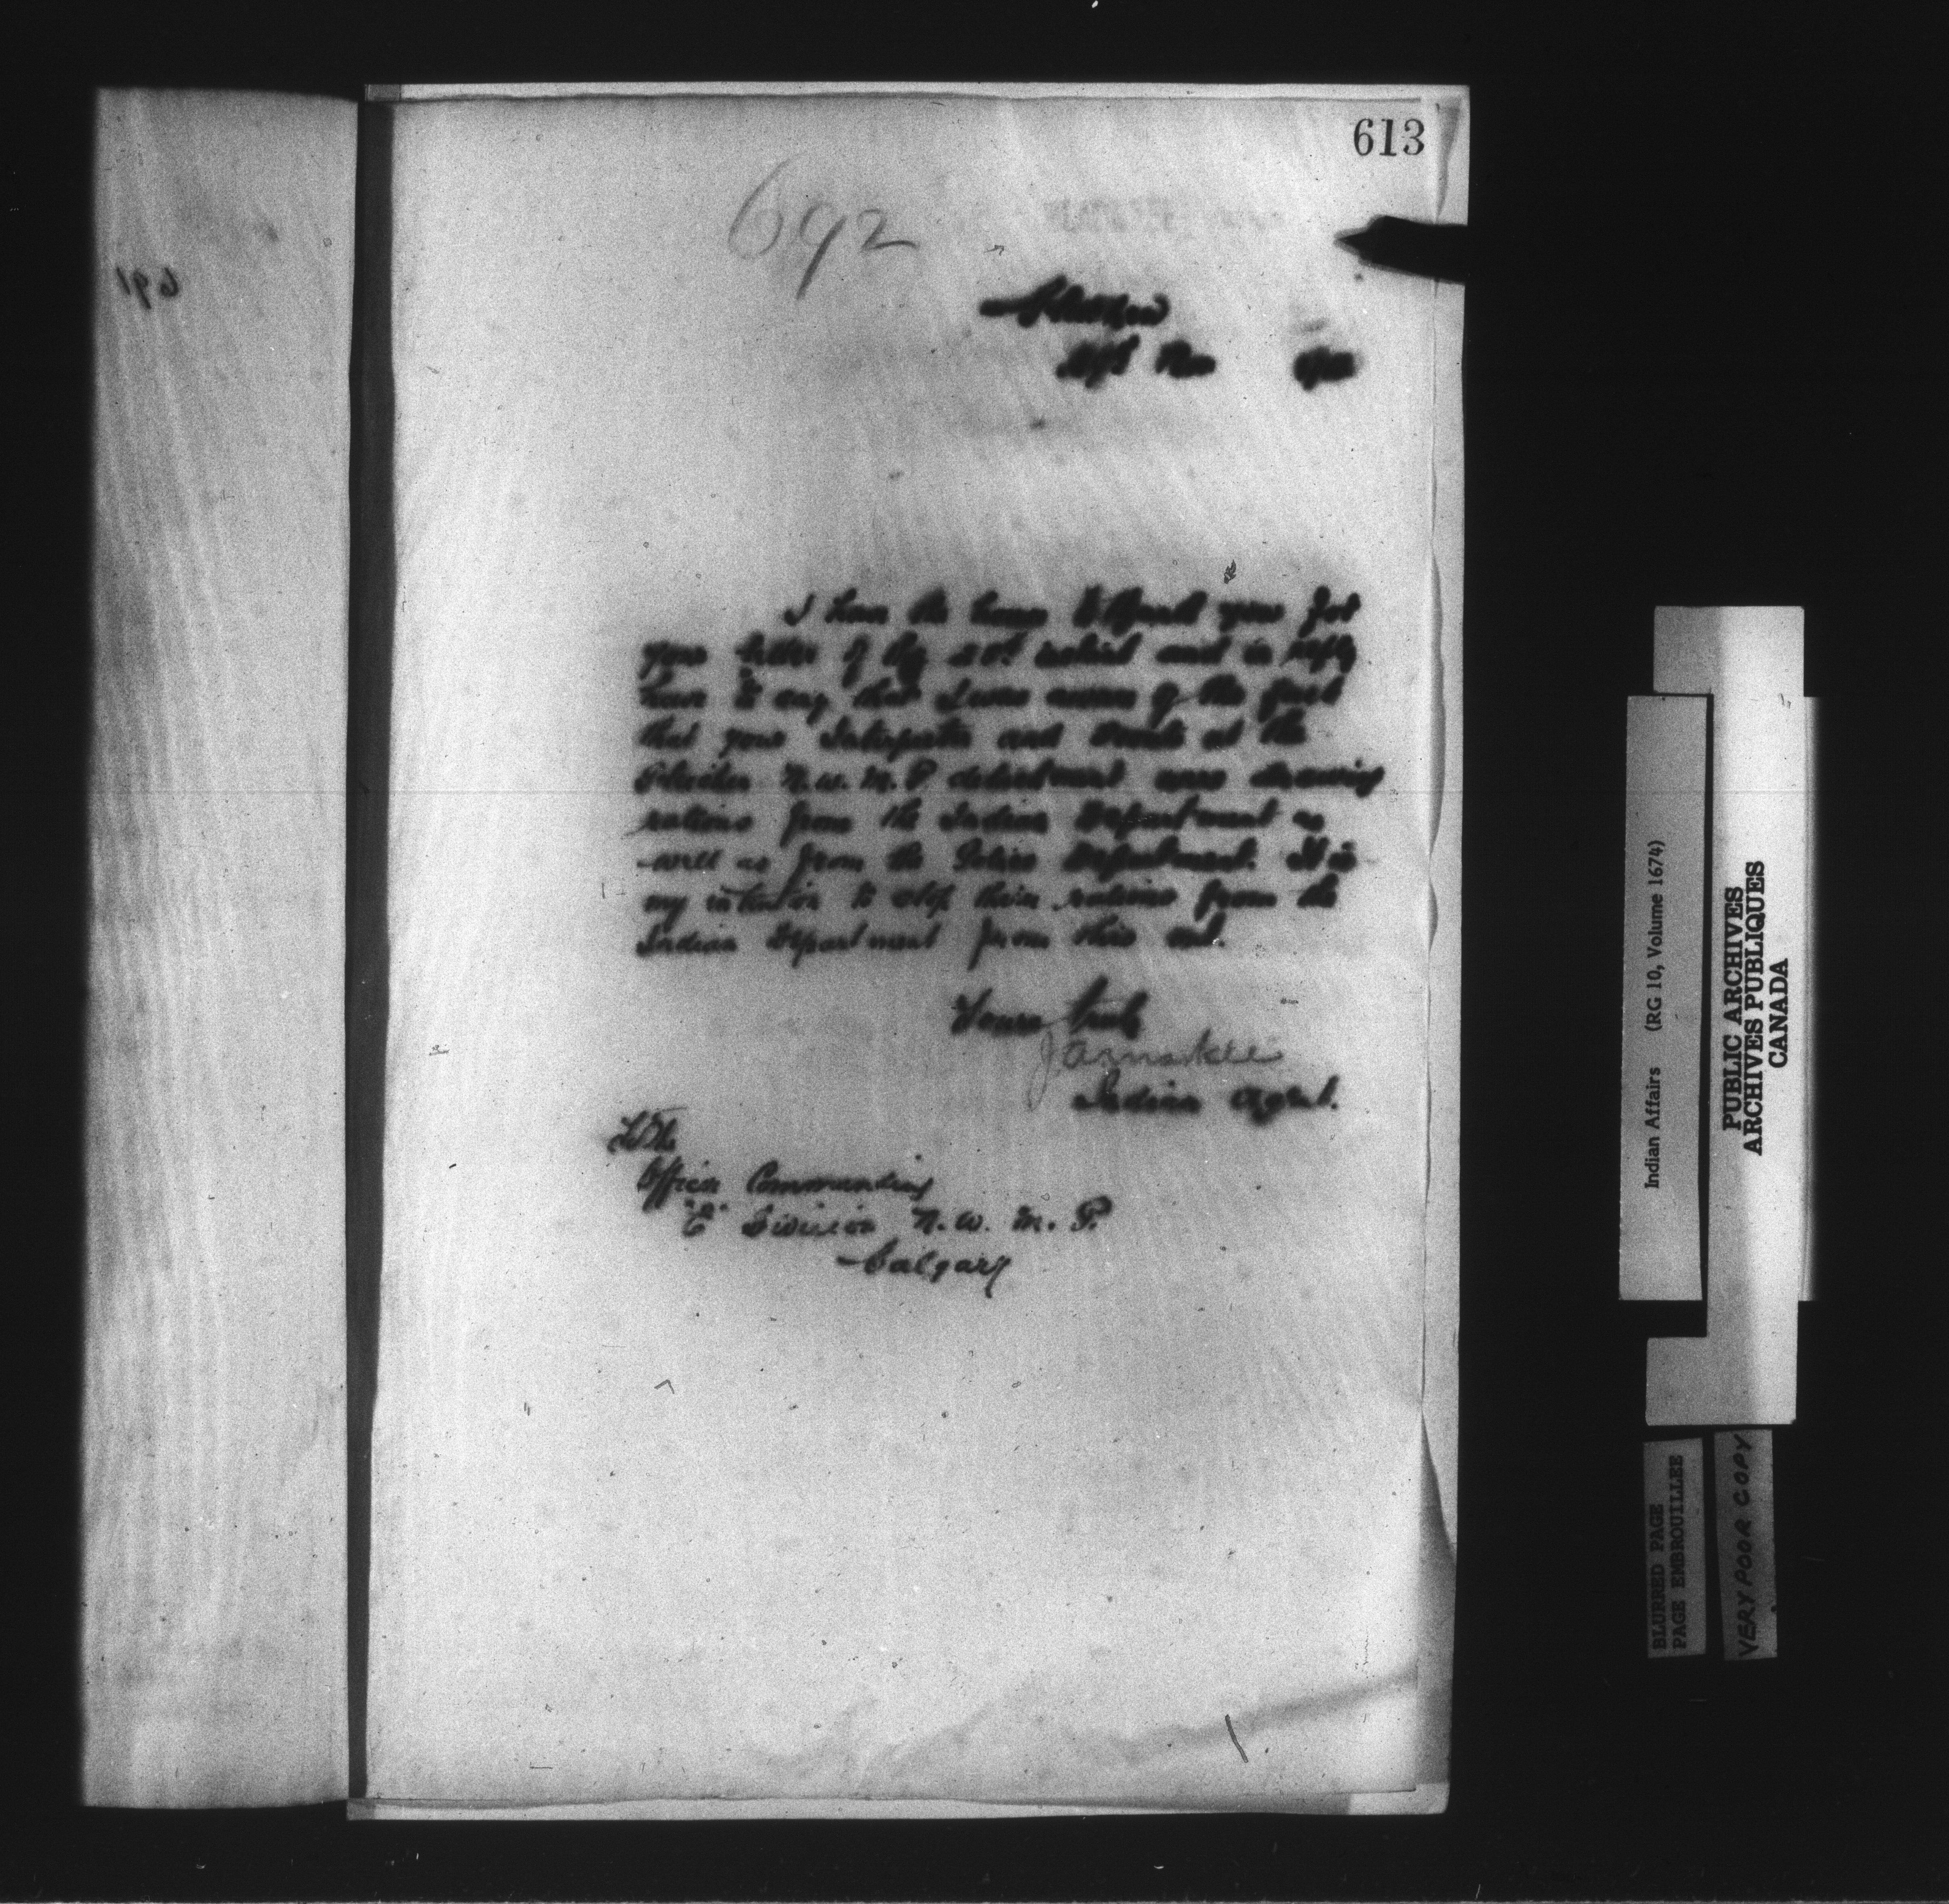 613
692
691
Gleichen
Nov
I have the honor to thank you for
your letter of the 20th and in reply
have to say that I was aware of the fact
that your Interpreter and Scouts at the
Gleichen N.W.M.P detachment were drawing
rations from the Indian Department as
well as from the Police Department. It is
my intention to stop their rations from the
Indian Department from this out.
Yours truly
Indian Agent.
To the
Officer Commanding
"E" Division N.W.M.P.
Calgary
Indian Affairs (RG 10, Volume 1674)
PUBLIC ARCHIVES
ARCHIVES PUBLIQUES
CANADA
BLURRED PAGE
PAGE EMBROUILLEE
VERY POOR COPY